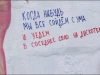 КОГДА НИБУДЬ
МЫ ВСЕ СОЙДЕМ С УМА
И УЕДЕМ
В СОСЕДНЕЕ СЕЛО НА ДИСКОТЕКУ